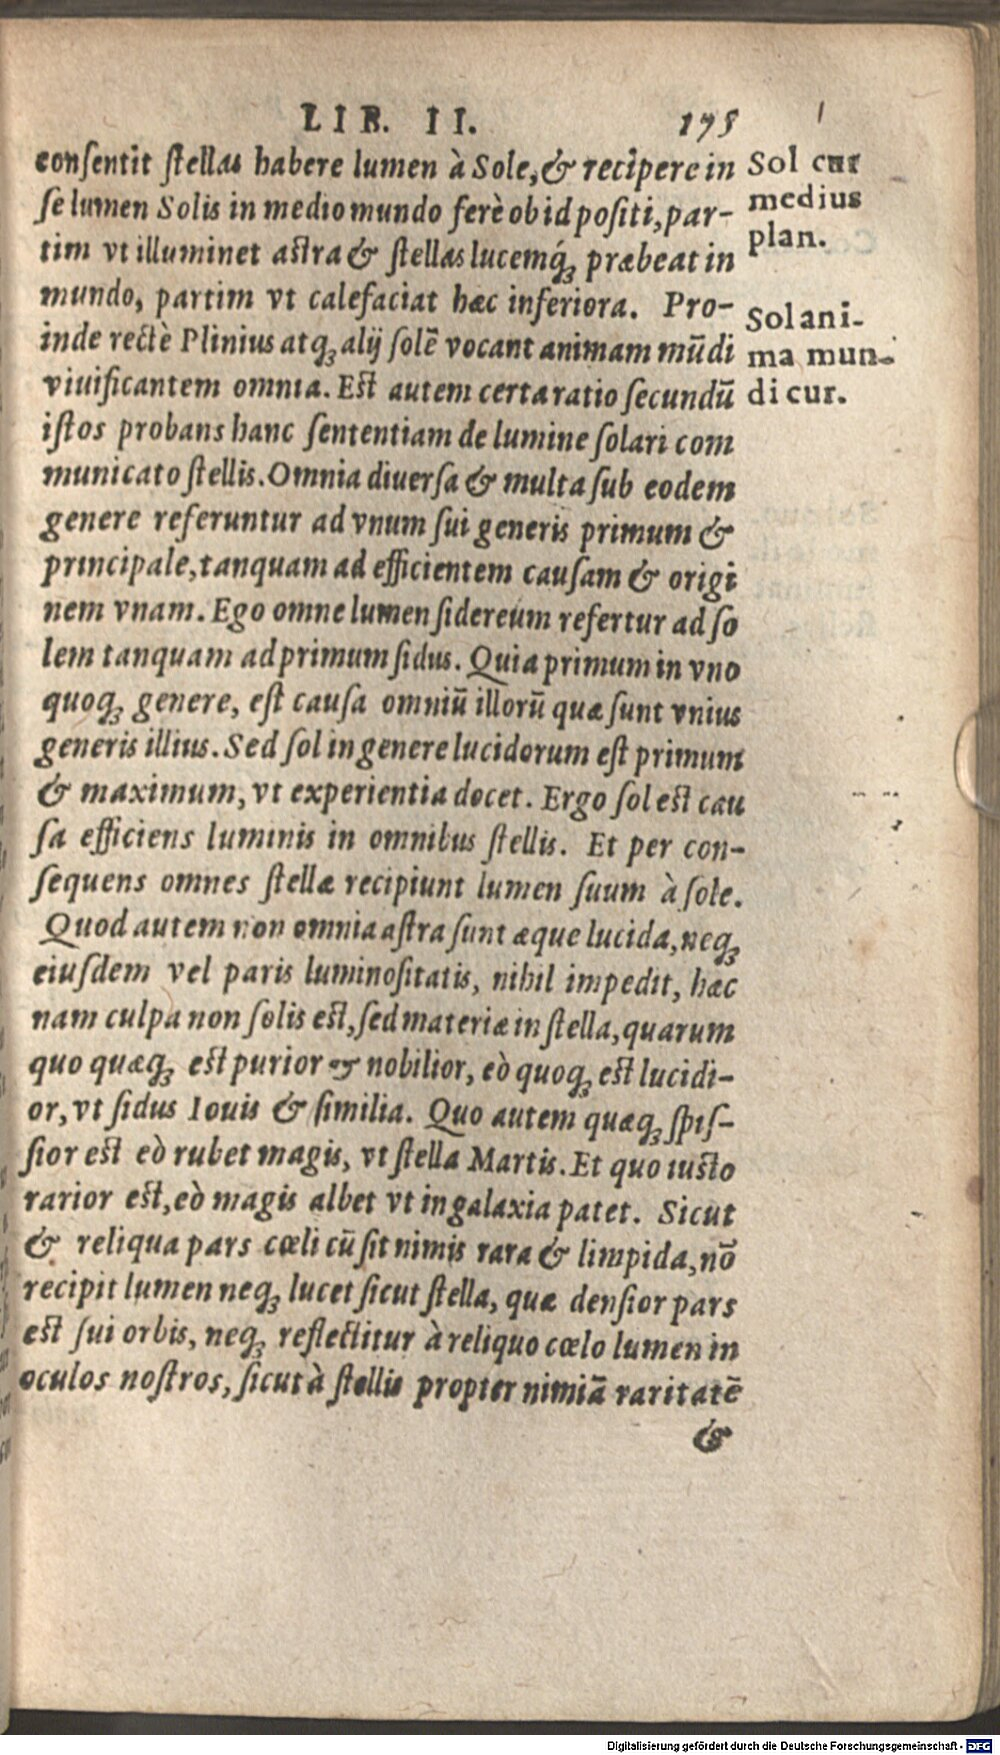 LIB. II. 175
conſentit ſtellas habere lumen à Sole, & recipere in
ſe lumen Solis in medio mundo ferè ob id poſiti, par-
tim vt illuminet aſtra & ſtellas lucemq́ꝫ præbeat in
mundo, partim vt calefaciat hæc inferiora. Pro-
inde rectè Plinius atqꝫ alij ſolē vocant animam mūdi
viuificantem omnia. Eſt autem certa ratio ſecundū
iſtos probans hanc ſententiam de lumine ſolari com
municato ſtellis. Omnia diuerſa & multa ſub eodem
genere referuntur ad vnum ſui generis primum &
principale, tanquam ad efficientem cauſam & origi
nem vnam. Ego omne lumen ſidereum refertur ad ſo
lem tanquam ad primum ſidus. Quia primum in vno
quoqꝫ genere, eſt cauſa omniū illorū quæ ſunt vnius
generis illius. Sed ſol in genere lucidorum eſt primum
& maximum, vt experientia docet. Ergo ſol eſt cau
ſa efficiens luminis in omnibus ſtellis. Et per con-
ſequens omnes ſtellæ recipiunt lumen ſuum à ſole.
Quod autem non omnia aſtra ſunt æque lucida, neqꝫ
eiuſdem vel paris luminoſitatis, nihil impedit, hæc
nam culpa non ſolis eſt, ſed materiæ in ſtella, quarum
quo quæqꝫ eſt purior & nobilior, eò quoqꝫ eſt lucidi-
or, vt ſidus Iouis & ſimilia. Quo autem quæqꝫ ſpiſ-
ſior eſt eò rubet magis, vt ſtella Martis. Et quo iuſto
rarior eſt, eò magis albet vt in galaxia patet. Sicut
& reliqua pars cœli cū ſit nimis rara & limpida, nō
recipit lumen neqꝫ lucet ſicut ſtella, quæ denſior pars
eſt ſui orbis, neqꝫ reflectitur à reliquo cœlo lumen in
oculos noſtros, ſicut à ſtellis propter nimiā raritatē
&
Sol cur
medius
plan.
Sol ani-
ma mun-
di cur.
Digitalisierung gefördert durch die Deutsche Forschungsgemeinschaft - DFG